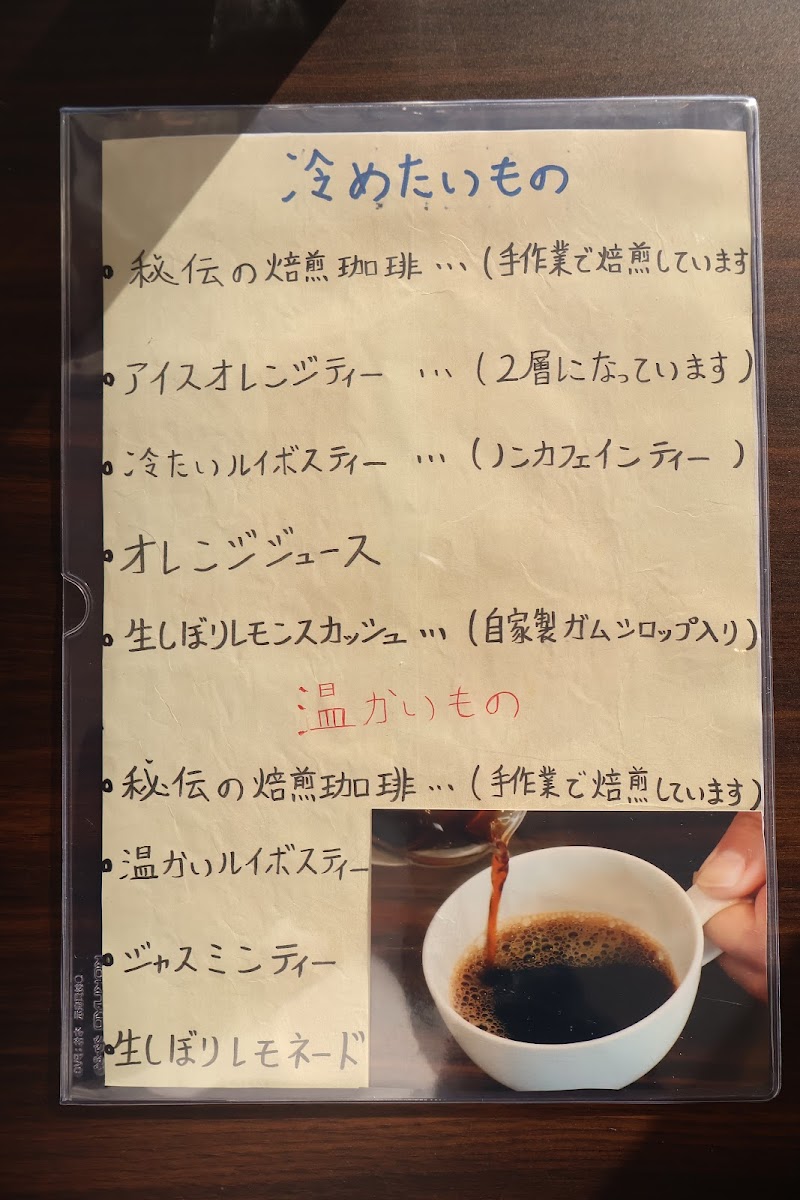 冷めたいもの
秘伝の焙煎珈琲…(手作業で焙煎しています
アイスオレンジティー …(2層になっています)
冷たいルイボスティー …(ノンカフェインティー)
オレンジジュース
生しぼりレモンスカッシュ…(自家製ガムシロップ入り)
温かいもの
秘伝の焙煎珈琲…(手作業で焙煎しています)
温かいルイボスティー
ジャスミンティー
生しぼりレモネード